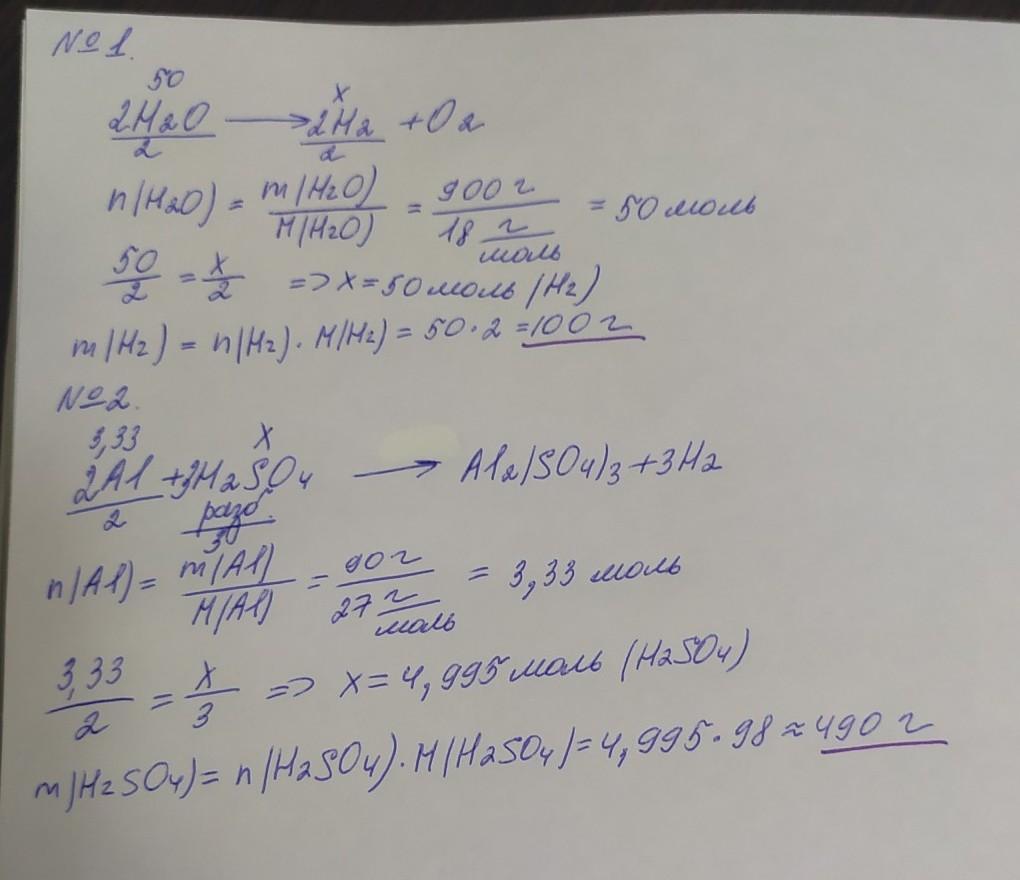 №1.
50 x
2H2O ⟶ 2H2 + O2
2 2
n(H2O) = m(H2O) / M(H2O) = 900 г / 18 г/моль = 50 моль
50/2 = x/2 => x = 50 моль (H2)
m(H2) = n(H2) · M(H2) = 50 · 2 = 100 г
№2.
3,33 x
2Al + 3H2SO4 ⟶ Al2(SO4)3 + 3H2
2 разб. 3
n(Al) = m(Al) / M(Al) = 90 г / 27 г/моль = 3,33 моль
3,33/2 = x/3 => x = 4,995 моль (H2SO4)
m(H2SO4) = n(H2SO4) · M(H2SO4) = 4,995 · 98 ≈ 490 г